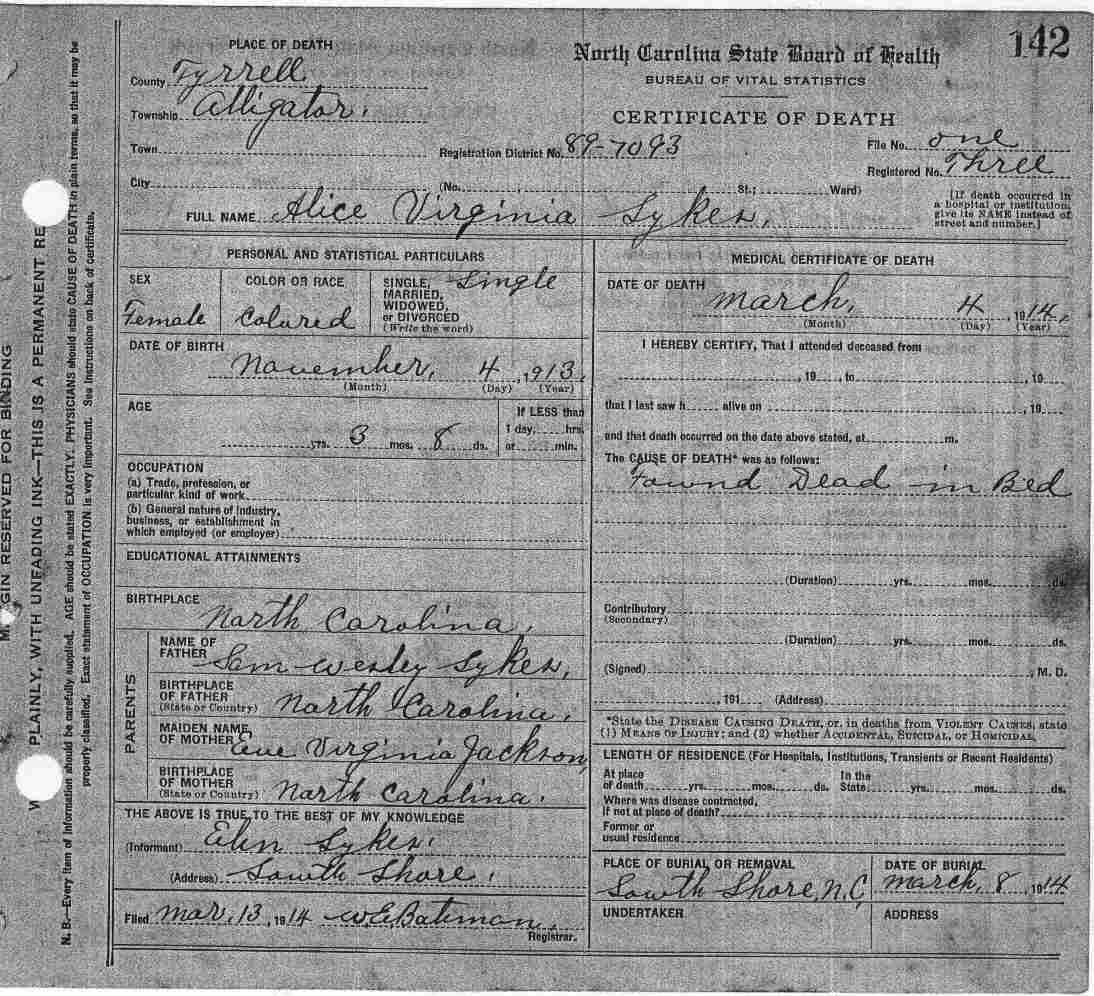 142
PLACE OF DEATH
County Tyrrell
Township Alligator.
Town
City
North Carolina State Board of Health
BUREAU OF VITAL STATISTICS
CERTIFICATE OF DEATH
Registration District No. 89-7093
File No. one
Registered No. Three
(No. , St.; Ward)
[If death occurred in
a hospital or institution,
give its NAME instead of
street and number.]
FULL NAME Alice Virginia Sykes,
PERSONAL AND STATISTICAL PARTICULARS
SEX
Female
COLOR OR RACE
Colured
SINGLE,
MARRIED,
WIDOWED,
or DIVORCED
(Write the word)
Single
DATE OF BIRTH
November, 4, 1913,
(Month) (Day) (Year)
AGE
yrs. 3 mos. 8 ds.
If LESS than
1 day, hrs.
or min.
OCCUPATION
(a) Trade, profession, or
particular kind of work
(b) General nature of industry,
business, or establishment in
which employed (or employer)
EDUCATIONAL ATTAINMENTS
BIRTHPLACE
North Carolina,
PARENTS
NAME OF
FATHER Sam Wesley Sykes,
BIRTHPLACE
OF FATHER
(State or Country) North Carolina,
MAIDEN NAME
OF MOTHER Eve Virginia Jackson,
BIRTHPLACE
OF MOTHER
(State or Country) North Carolina.
THE ABOVE IS TRUE TO THE BEST OF MY KNOWLEDGE
(Informant) Sykes.
(Address) South Shore.
Filed Mar, 13, 1914 W.E. Bateman,
Registrar.
MEDICAL CERTIFICATE OF DEATH
DATE OF DEATH
March, 4, 1914,
(Month) (Day) (Year)
I HEREBY CERTIFY, That I attended deceased from
, 19 , to , 19
that I last saw h alive on , 19
and that death occurred on the date above stated, at m.
The CAUSE OF DEATH* was as follows:
Found Dead in Bed
(Duration) yrs. mos. ds.
Contributory
(Secondary)
(Duration) yrs. mos. ds.
(Signed) , M. D.
, 191 (Address)
*State the DISEASE CAUSING DEATH, or, in deaths from VIOLENT CAUSES, state
(1) MEANS OF INJURY; and (2) whether ACCIDENTAL, SUICIDAL, OR HOMICIDAL.
LENGTH OF RESIDENCE (For Hospitals, Institutions, Transients or Recent Residents)
At place
of death yrs. mos. ds.
In the
State yrs. mos. ds.
Where was disease contracted,
if not at place of death?
Former or
usual residence
PLACE OF BURIAL OR REMOVAL
South Shore, N.C,
DATE OF BURIAL
March, 8, 1914
UNDERTAKER
ADDRESS
GIN RESERVED FOR BINDING
PLAINLY, WITH UNFADING INK—THIS IS A PERMANENT RE
N. B.—Every item of information should be carefully supplied. AGE should be stated EXACTLY. PHYSICIANS should state CAUSE OF DEATH in plain terms, so that it may be
properly classified. Exact statement of OCCUPATION is very important. See instructions on back of certificate.